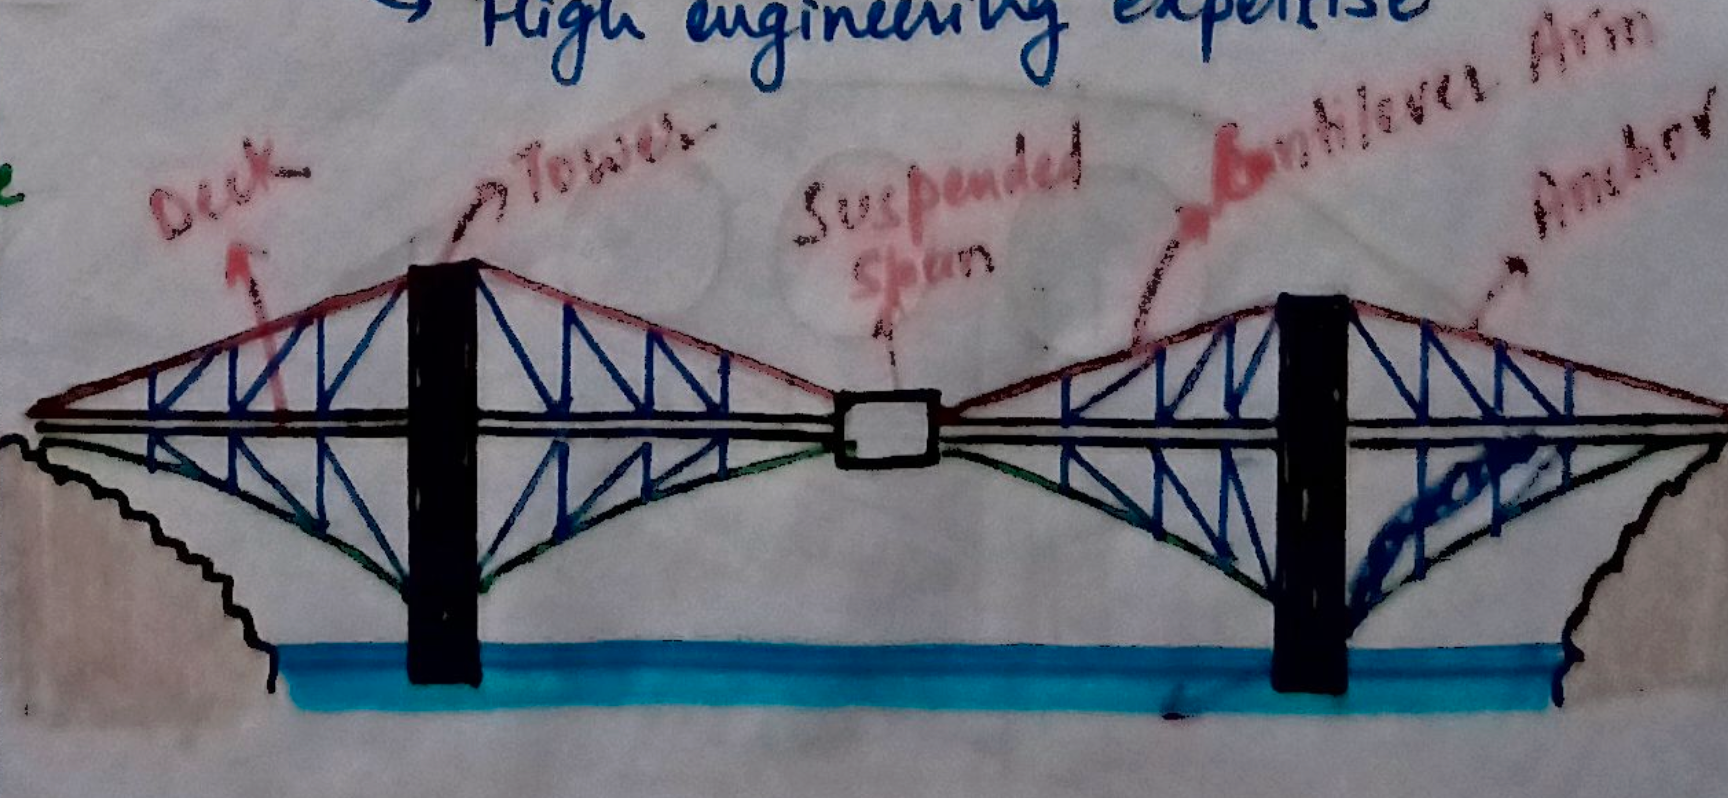 ↳ High engineering expertise
Deck
Tower
Suspended
Span
Cantilever Arm
Anchor